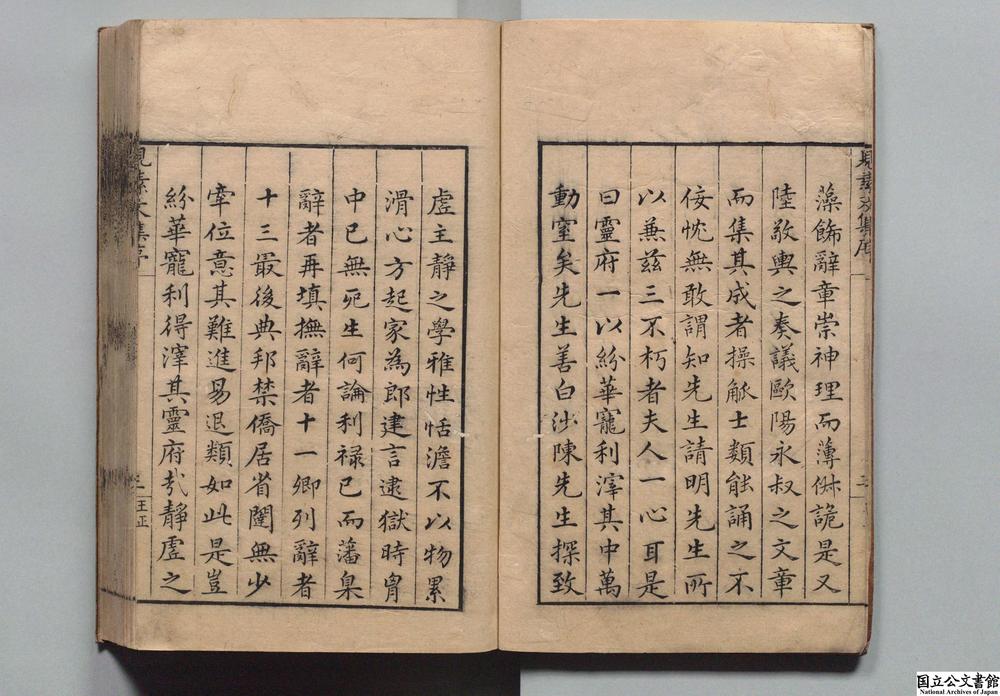 藻飾辭章崇神理而薄恠詭是又
陸敬輿之奏議歐陽永叔之文章
而集其成者操觚士類能誦之不
佞忱無敢謂知先生請明先生所
以兼茲三不朽者夫人一心耳是
曰靈府一以紛華寵利滓其中萬
動窒矣先生善白沙陳先生探致
虛主靜之學雅性恬澹不以物累
滑心方起家為郎建言逮獄時胷
中已無死生何論利祿已而藩臬
辭者再填撫辭者十一卿列辭者
十三最後典邦禁僑居省闥無少
牽位意其難進易退類如此是豈
紛華寵利得滓其靈府哉靜虛之
見素文集序
三
王正
国立公文書館
National Archives of Japan